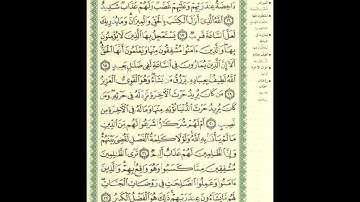 دَاحِضَةٌ عِندَ رَبِّهِمْ وَعَلَيْهِمْ غَضَبٌ وَلَهُمْ عَذَابٌ شَدِيدٌ
١٦ ٱللَّهُ ٱلَّذِىٓ أَنزَلَ ٱلْكِتَٰبَ بِٱلْحَقِّ وَٱلْمِيزَانَ وَمَا يُدْرِيكَ
لَعَلَّ ٱلسَّاعَةَ قَرِيبٌ ١٧ يَسْتَعْجِلُ بِهَا ٱلَّذِينَ لَا يُؤْمِنُونَ
بِهَا وَٱلَّذِينَ ءَامَنُوا۟ مُشْفِقُونَ مِنْهَا وَيَعْلَمُونَ أَنَّهَا ٱلْحَقُّ
أَلَآ إِنَّ ٱلَّذِينَ يُمَارُونَ فِى ٱلسَّاعَةِ لَفِى ضَلَٰلٍۭ بَعِيدٍ ١٨
ٱللَّهُ لَطِيفٌۢ بِعِبَادِهِۦ يَرْزُقُ مَن يَشَآءُ وَهُوَ ٱلْقَوِىُّ ٱلْعَزِيزُ
١٩ مَن كَانَ يُرِيدُ حَرْثَ ٱلْءَاخِرَةِ نَزِدْ لَهُۥ فِى حَرْثِهِۦ وَمَن
كَانَ يُرِيدُ حَرْثَ ٱلدُّنْيَا نُؤْتِهِۦ مِنْهَا وَمَا لَهُۥ فِى ٱلْءَاخِرَةِ مِن
نَّصِيبٍ ٢٠ أَمْ لَهُمْ شُرَكَٰٓؤُا۟ شَرَعُوا۟ لَهُم مِّنَ ٱلدِّينِ
مَا لَمْ يَأْذَنۢ بِهِ ٱللَّهُ وَلَوْلَا كَلِمَةُ ٱلْفَصْلِ لَقُضِىَ بَيْنَهُمْ
وَإِنَّ ٱلظَّٰلِمِينَ لَهُمْ عَذَابٌ أَلِيمٌ ٢١ تَرَى ٱلظَّٰلِمِينَ
مُشْفِقِينَ مِمَّا كَسَبُوا۟ وَهُوَ وَاقِعٌۢ بِهِمْ وَٱلَّذِينَ
ءَامَنُوا۟ وَعَمِلُوا۟ ٱلصَّٰلِحَٰتِ فِى رَوْضَاتِ ٱلْجَنَّاتِ
لَهُم مَّا يَشَآءُونَ عِندَ رَبِّهِمْ ذَٰلِكَ هُوَ ٱلْفَضْلُ ٱلْكَبِيرُ